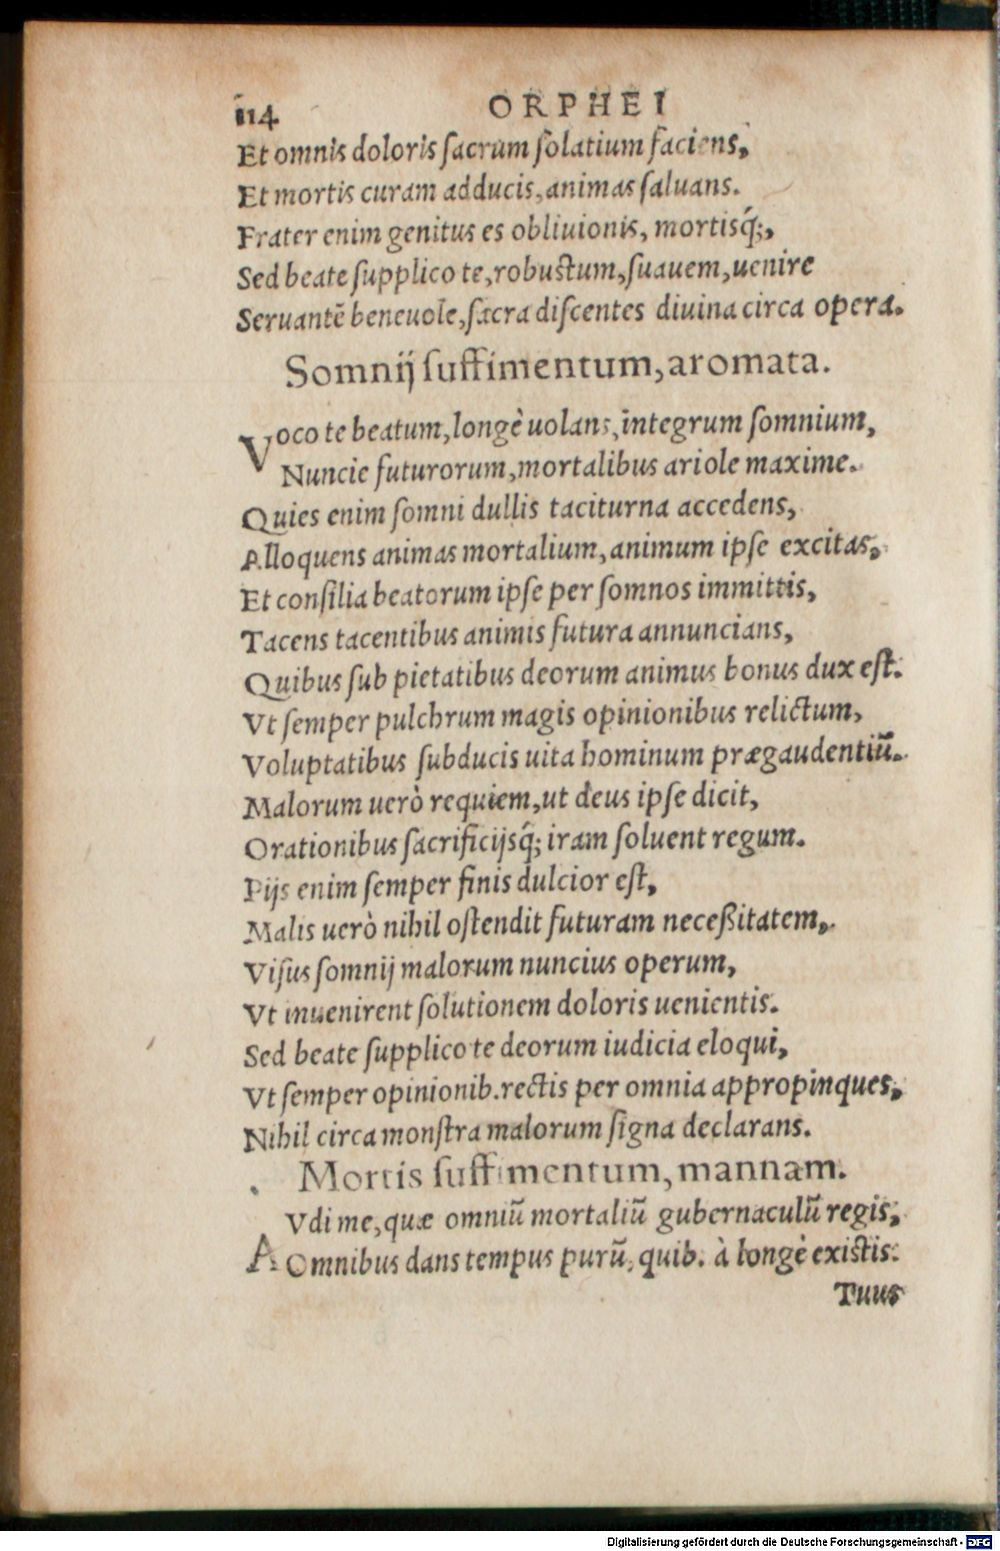 114 ORPHEI
Et omnis doloris ſacrum ſolatium faciens,
Et mortis curam adducis, animas ſaluans.
Frater enim genitus es obliuionis, mortisq́;,
Sed beate ſupplico te, robustum, ſuauem, uenire
Seruantē beneuole, ſacra diſcentes diuina circa opera.
Somnij ſuffimentum, aromata.
Voco te beatum, longè uolans, integrum ſomnium,
Nuncie futurorum, mortalibus ariole maxime.
Quies enim ſomni dullis taciturna accedens,
Alloquens animas mortalium, animum ipſe excitas,
Et conſilia beatorum ipſe per ſomnos immittis,
Tacens tacentibus animis futura annuncians,
Quibus ſub pietatibus deorum animus bonus dux eſt.
Vt ſemper pulchrum magis opinionibus relictum,
Voluptatibus ſubducis uita hominum prægaudentiū.
Malorum uerò requiem, ut deus ipſe dicit,
Orationibus ſacrificijsq́; iram ſoluent regum.
Pijs enim ſemper finis dulcior eſt,
Malis uerò nihil oſtendit futuram neceßitatem,
Viſus ſomnij malorum nuncius operum,
Vt inuenirent ſolutionem doloris uenientis.
Sed beate ſupplico te deorum iudicia eloqui,
Vt ſemper opinionib. rectis per omnia appropinques,
Nihil circa monſtra malorum ſigna declarans.
Mortis ſuffimentum, mannam.
AVdi me, quæ omniū mortaliū gubernaculū regis,
Omnibus dans tempus purū, quib. à longè existis:
Tuus
Digitalisierung gefördert durch die Deutsche Forschungsgemeinschaft - DFG